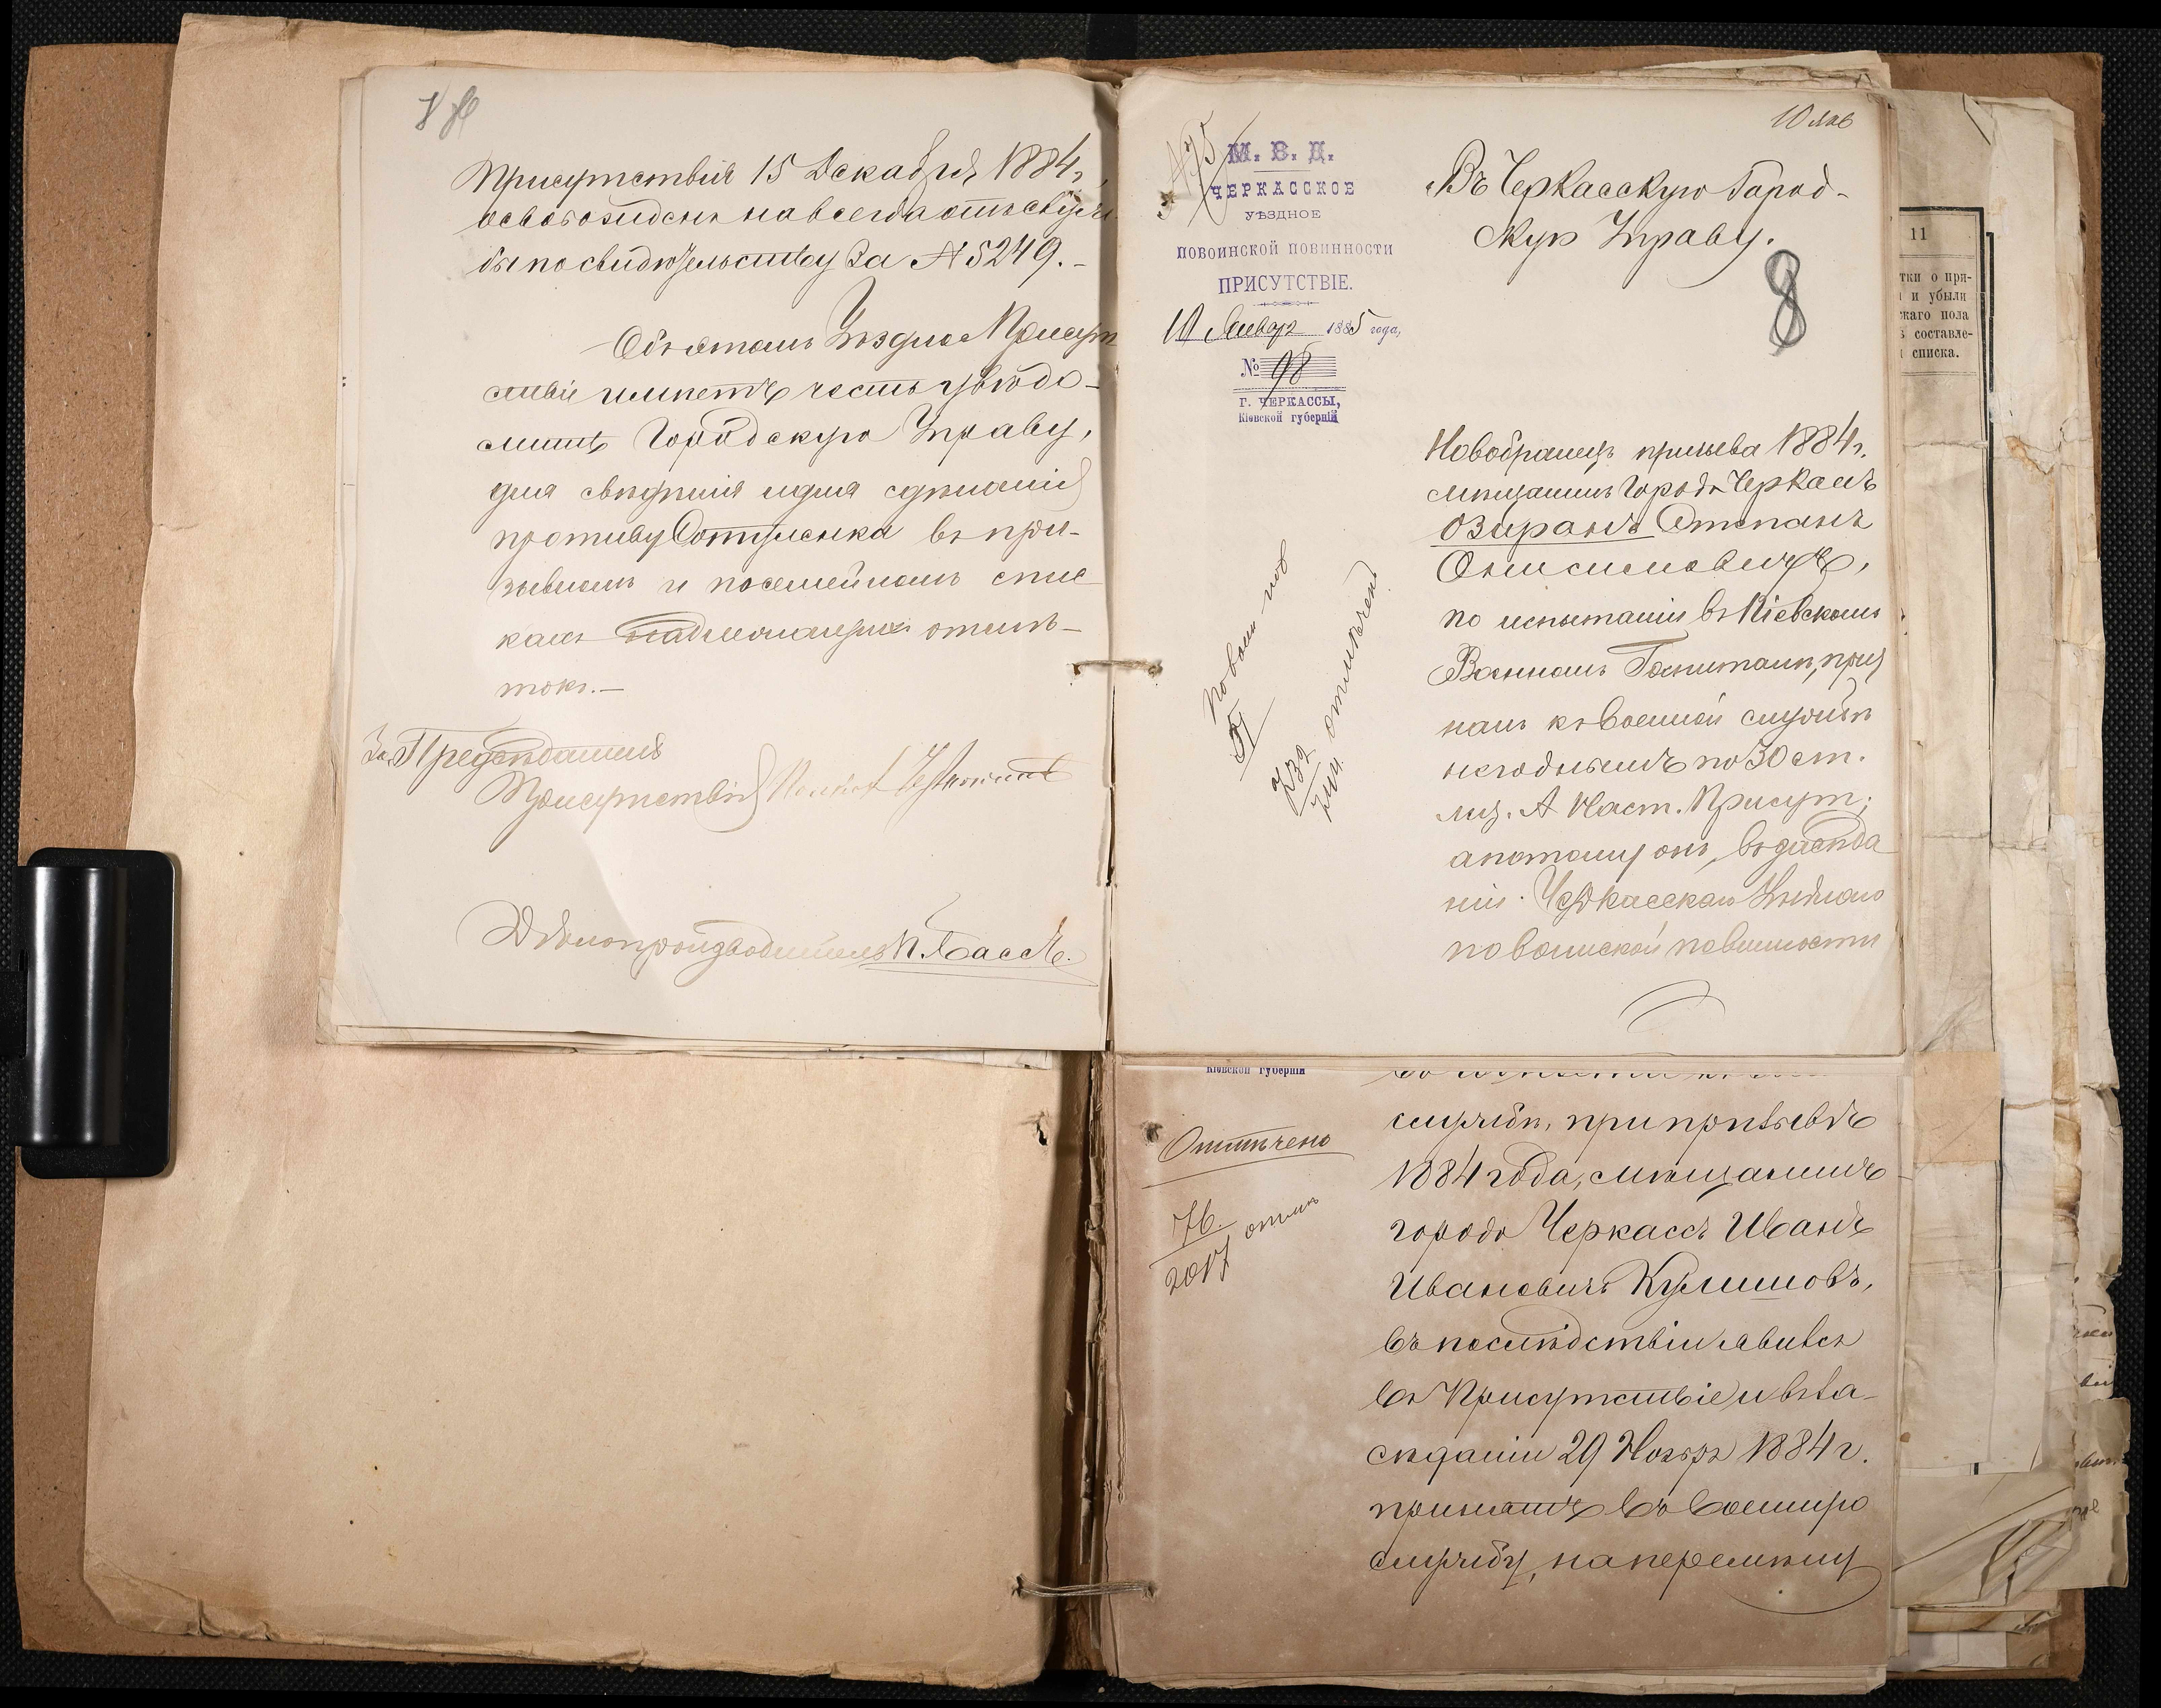 Присутствія 15 Декабря 1884 г.,
освобожденъ навсегда отъ служ
бы по свидѣтельству за № 5249.-
Объ этомъ Уѣздное Присут
ствіе имѣетъ честь увѣдо-
мить Городскую Управу,
для свѣдѣнія и для сдѣланія
противу Сотченка въ при-
зывномъ и посемейномъ спис
кахъ надлежащихъ отмѣ-
токъ.-
За Предсѣдателя
Присутствія
Дѣлопроизводитель П. Бассъ.
10 янв
М. В. Д.
ЧЕРКАССКОЕ
УѢЗДНОЕ
ПО ВОИНСКОЙ ПОВИННОСТИ
ПРИСУТСТВІЕ.
10 Январ 1885 года,
№ 98
Г. ЧЕРКАССЫ,
Кіевской губерніи
Въ Черкасскую Город-
скую Управу.
8
Новобранецъ призыва 1884 г.
мѣщанинъ города Черкасъ
Озиранъ Степанъ
Онисимовичъ,
по испытаніи въ Кіевскомъ
Военномъ Госпиталѣ, приз
нанъ къ военной службѣ
негоднымъ по 30 ст.
лит. А Наст. Присут;
а потому онъ, въ засѣда
ніи Черкасскаго Уѣзднаго
по воинской повинности
отмѣчено
732
11
тки о при-
и убыли
жаго пола
составле-
списка.
Кіевской губерніи
Отмѣчено
76.
2017 отмѣ
службѣ, при призывѣ
1884 года, мѣщанинъ
города Черкассъ Иванъ
Ивановичъ Кулишовъ,
въ послѣдствіи явился
въ Присутствіе и въ за-
сѣданіи 29 Ноября 1884 г.
принятъ въ военную
службу, на перемѣну